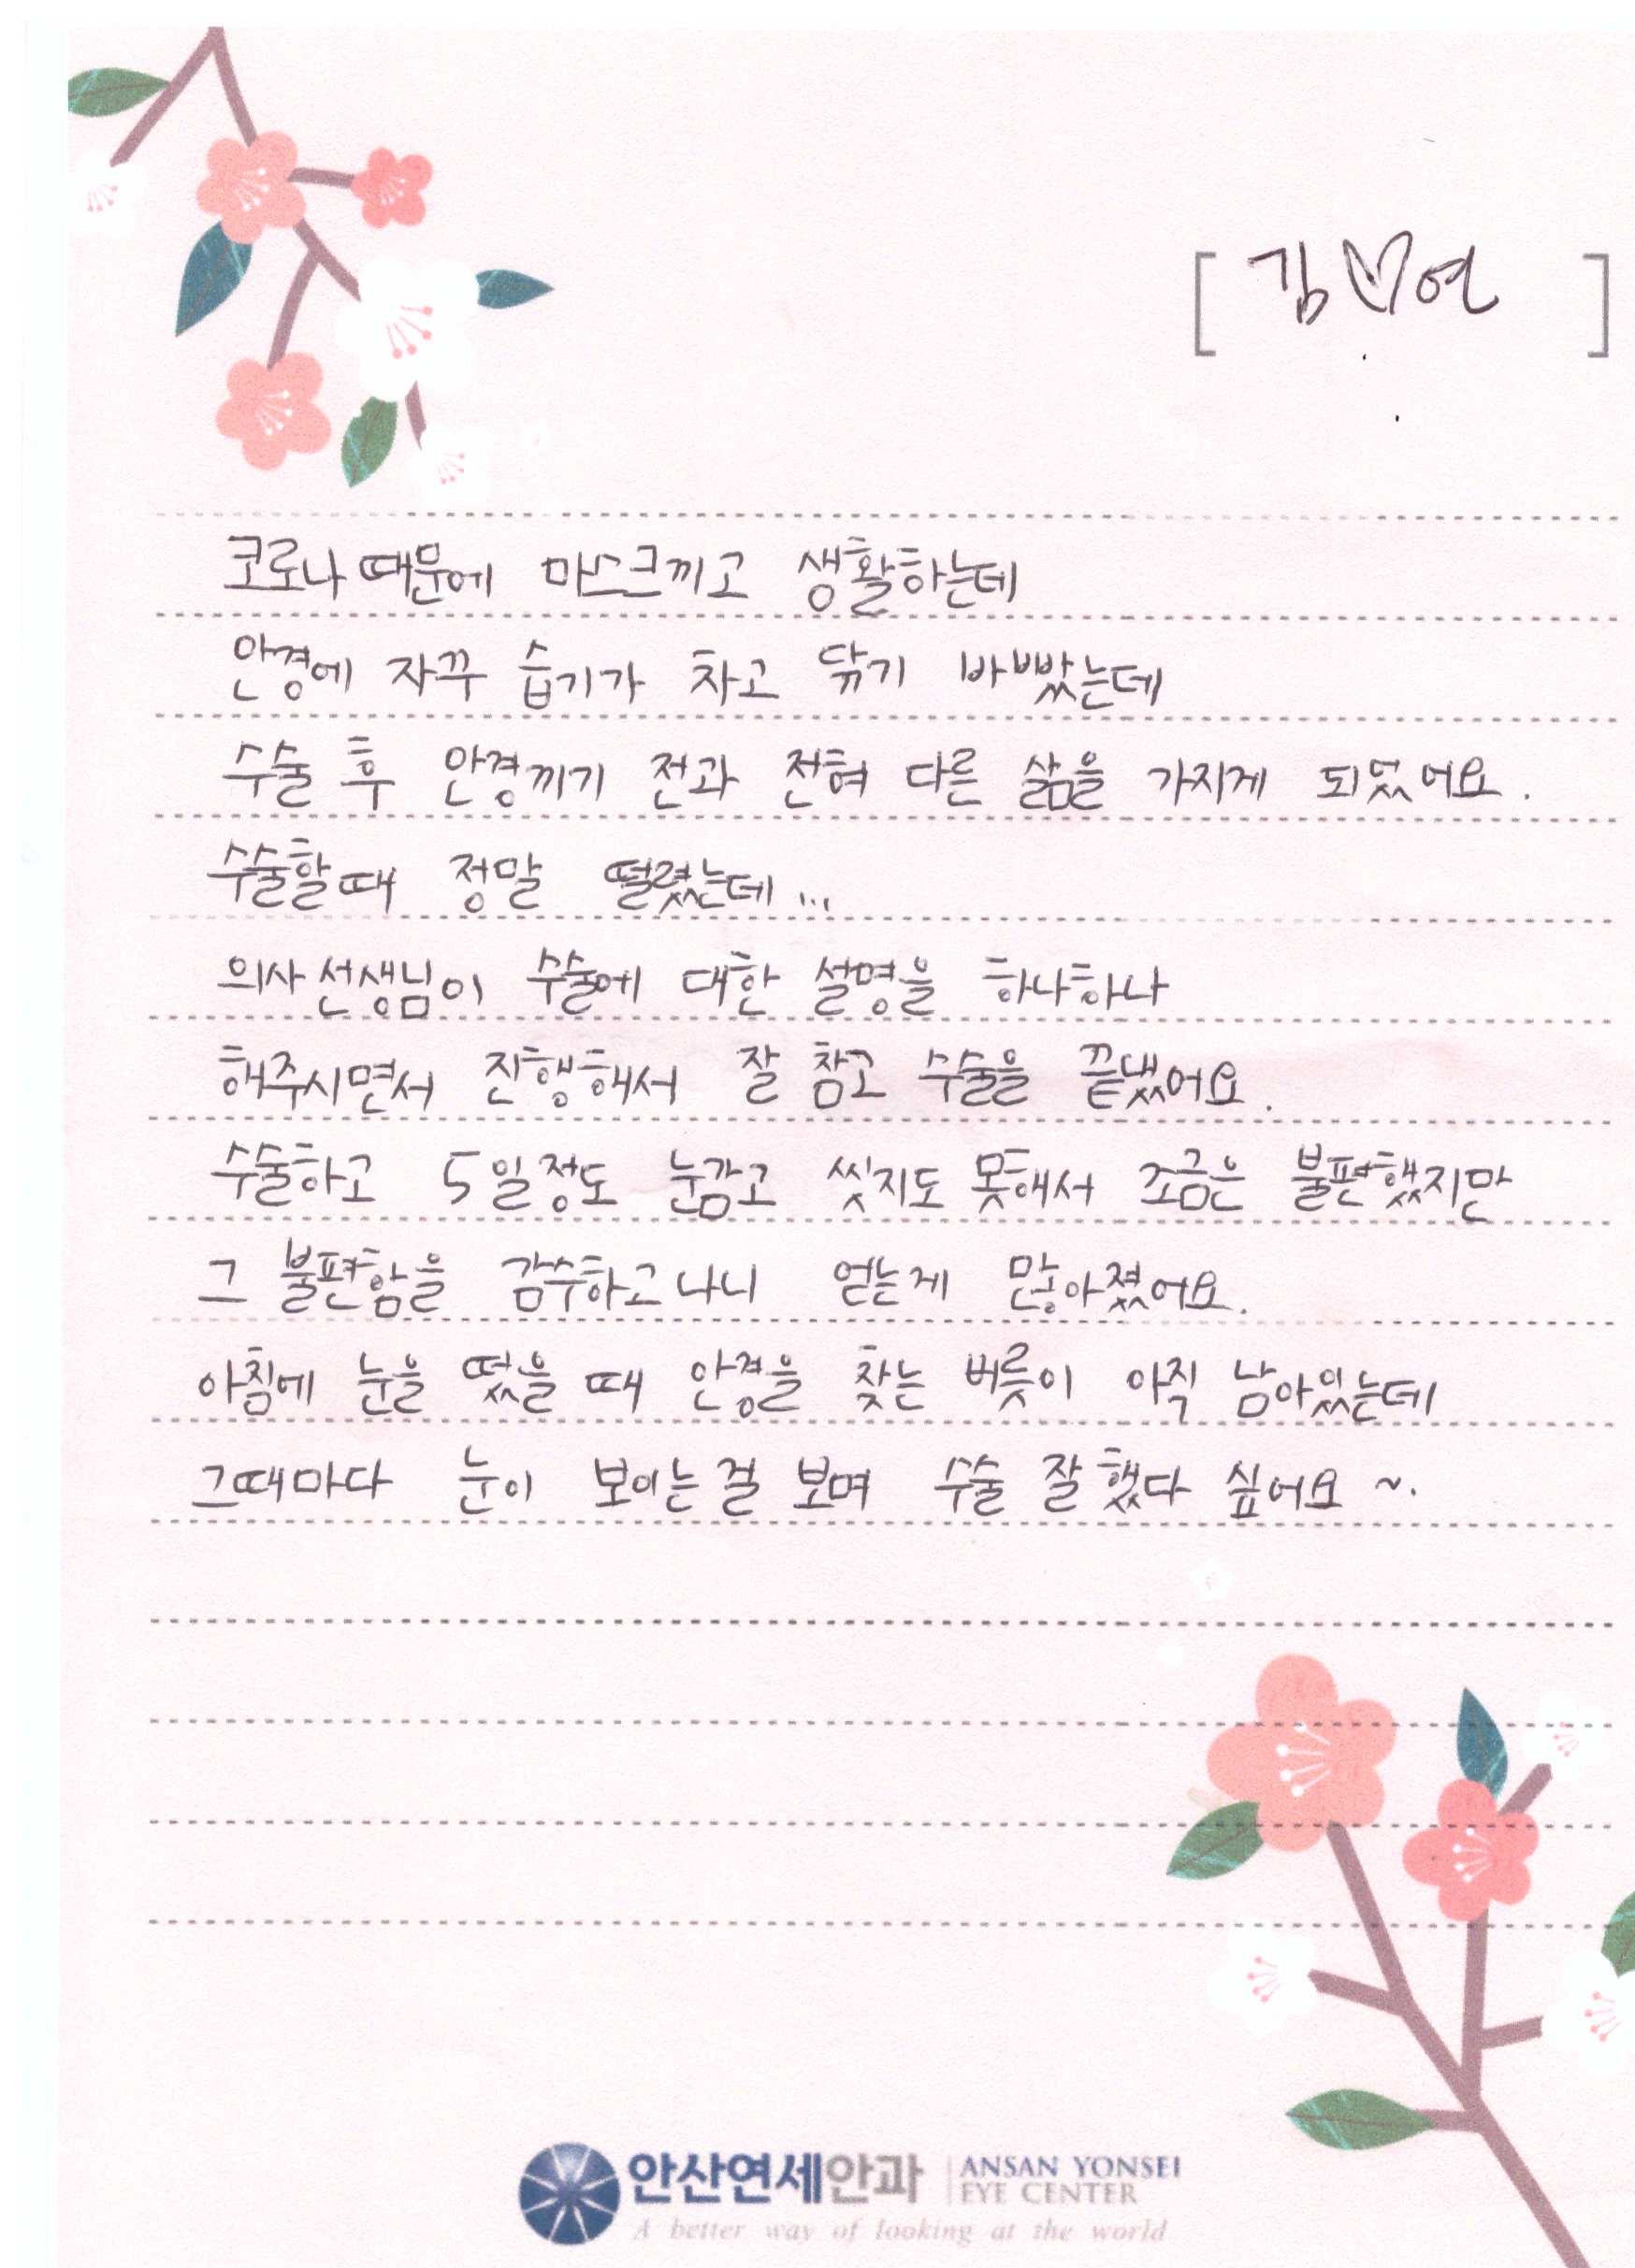 [ 김♡연 ]
코로나 때문에 마스크끼고 생활하는데
안경에 자꾸 습기가 차고 닦기 바빴는데
수술 후 안경끼기 전과 전혀 다른 삶을 가지게 되었어요.
수술할때 정말 떨렸는데...
의사선생님이 수술에 대한 설명을 하나하나
해주시면서 진행해서 잘 참고 수술을 끝냈어요.
수술하고 5일정도 눈감고 씻지도 못해서 조금은 불편했지만
그 불편함을 감수하고나니 얻는게 많아졌어요.
아침에 눈을 떴을 때 안경을 찾는 버릇이 아직 남아있는데
그때마다 눈이 보이는걸 보며 수술 잘했다 싶어요~.
안산연세안과 ANSAN YONSEI
EYE CENTER
A better way of looking at the world